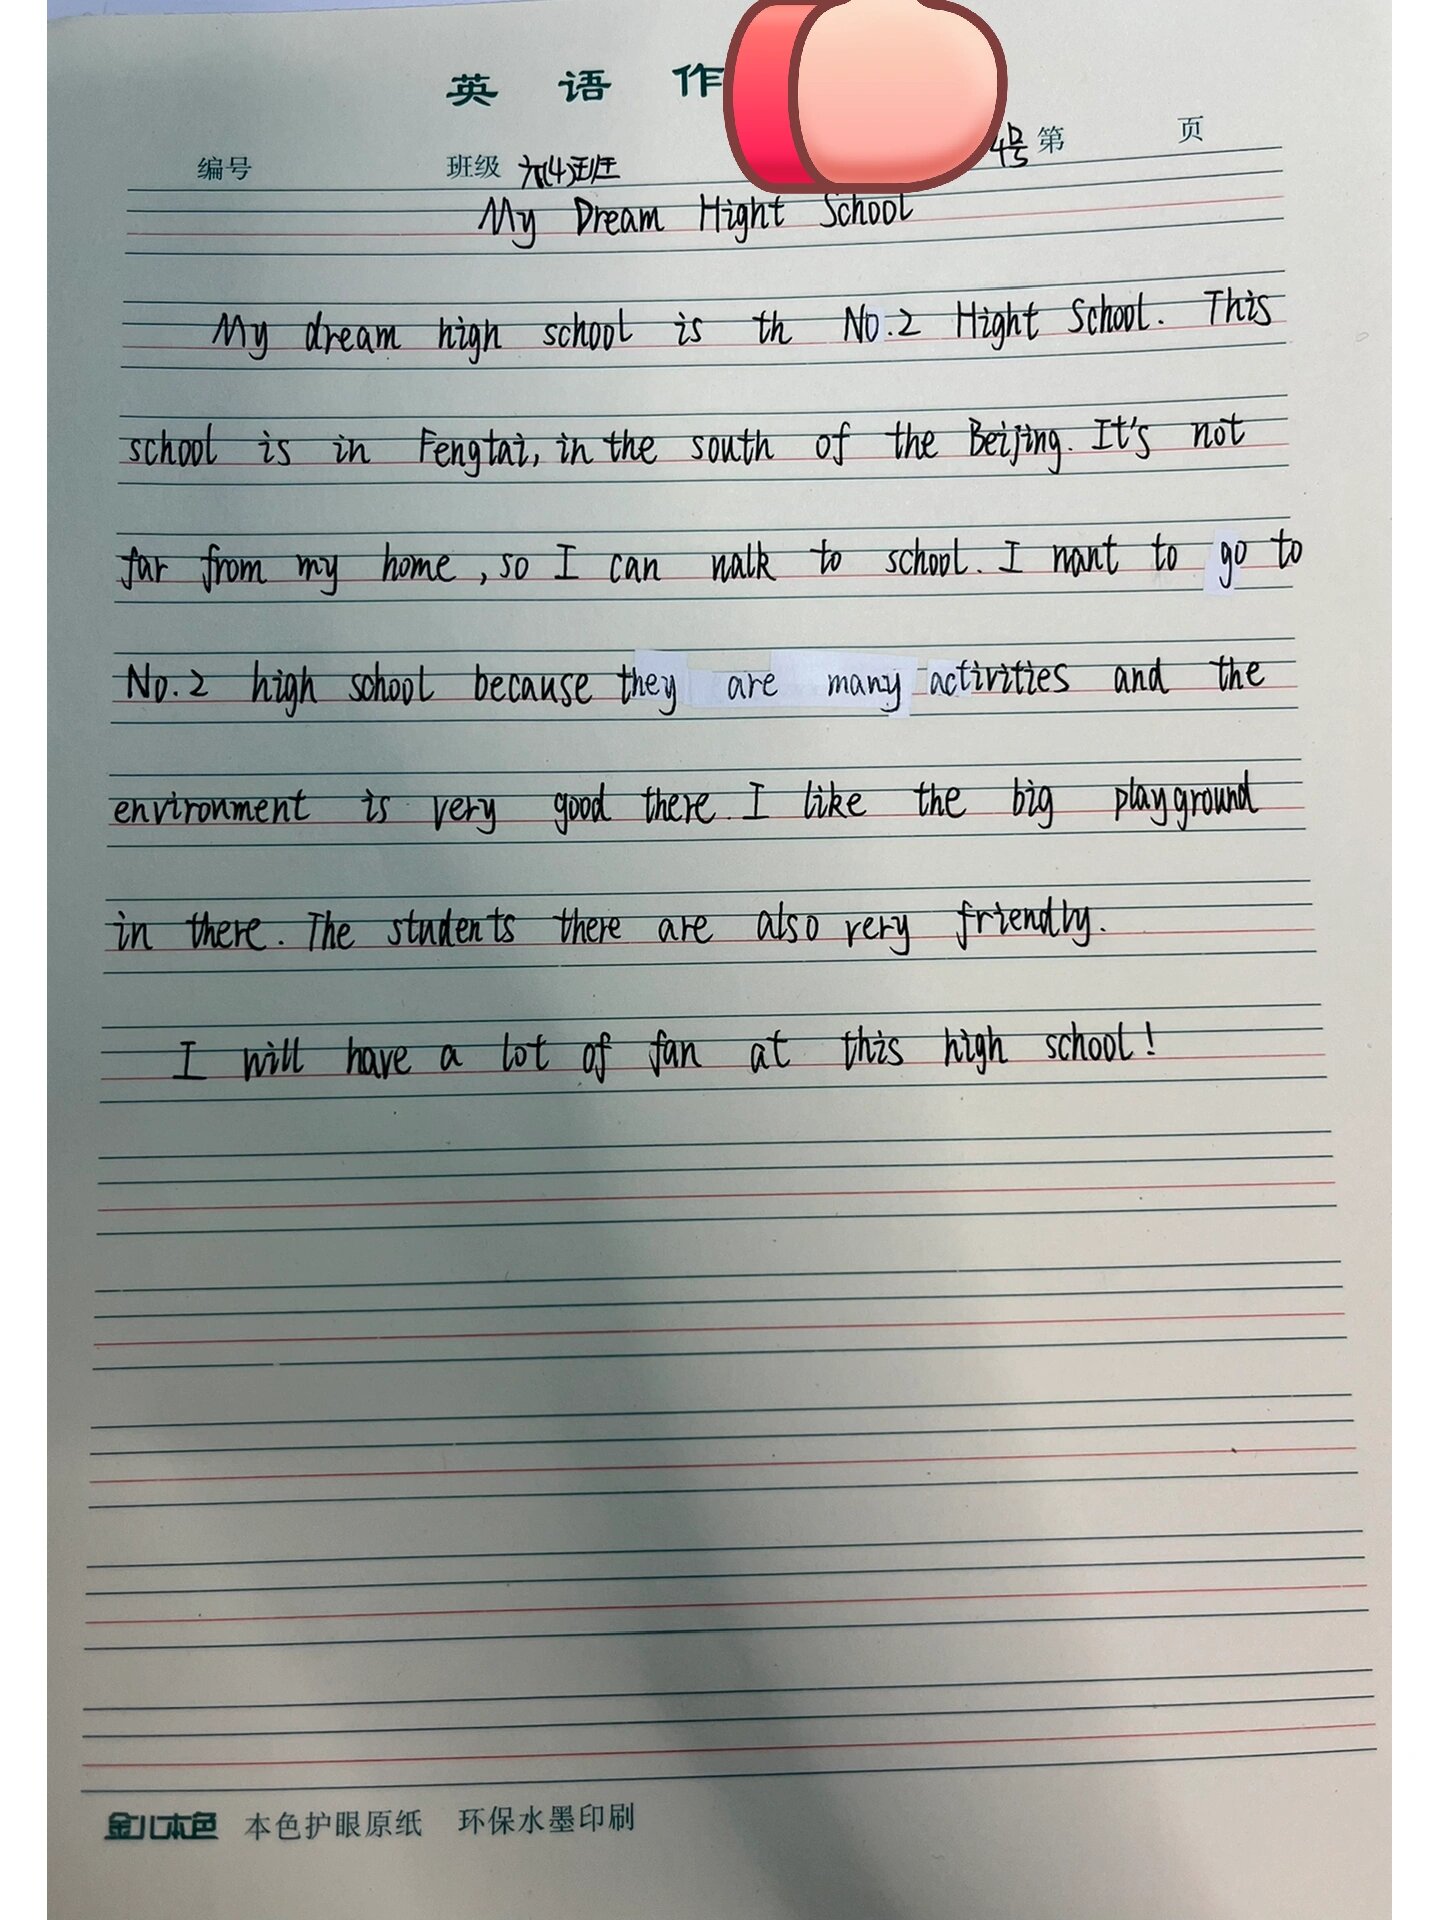 英 语 作
编号 班级 六(4)班 4号 第 页
My Dream Hight School
My dream high school is th No.2 Hight School. This
school is in Fengtai, in the south of the Beijing. It's not
far from my home, so I can walk to school. I want to go to
No.2 high school because they are many activities and the
environment is very good there. I like the big playground
in there. The students there are also very friendly.
I will have a lot of fan at this high school!
金儿本色 本色护眼原纸 环保水墨印刷